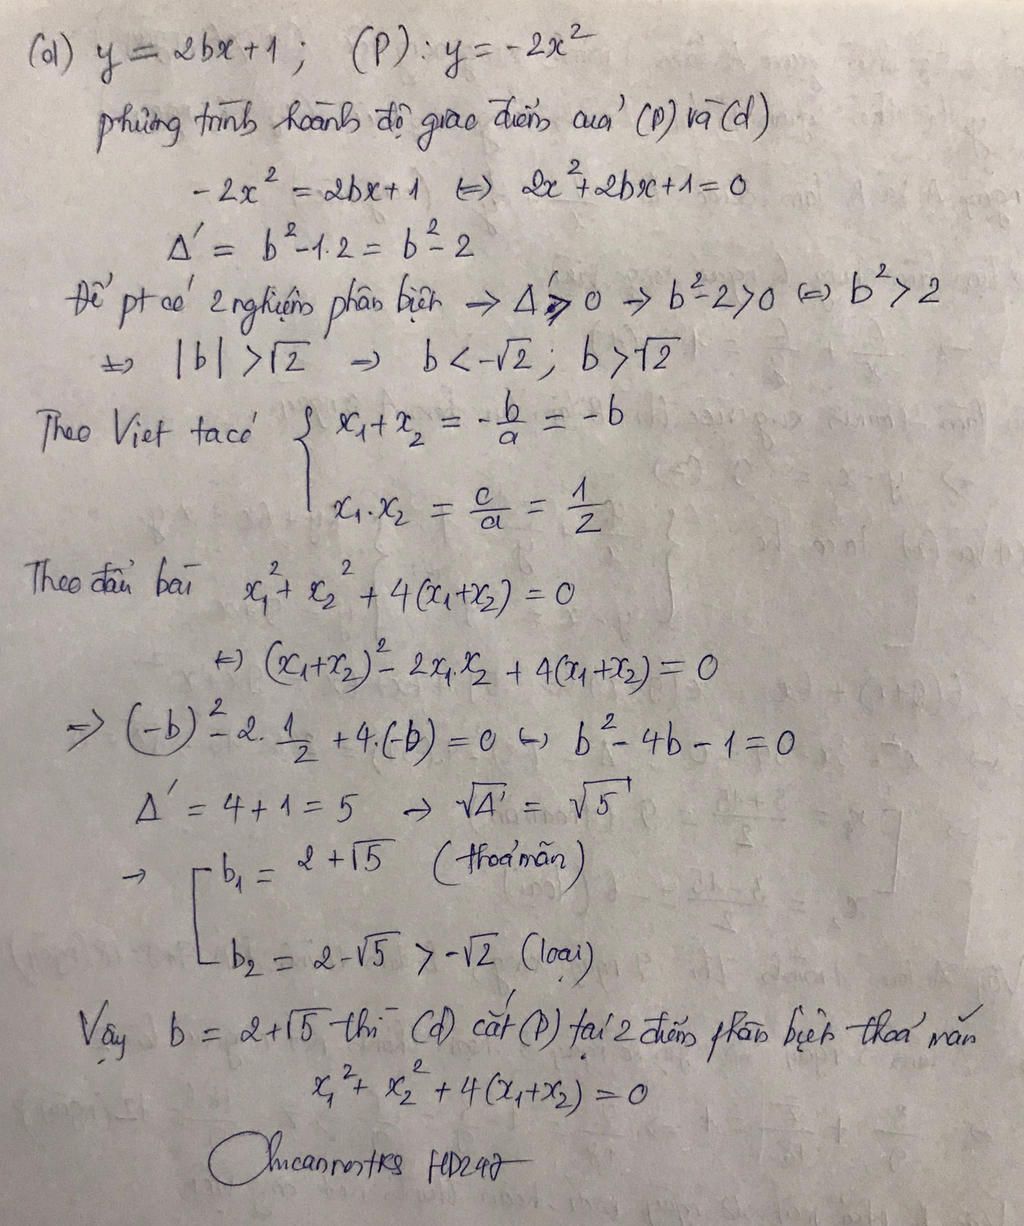 (d) y = 2bx+1; (P): y = -2x²
phương trình hoành độ giao điểm của (P) và (d)
-2x² = 2bx+1 ⇔ 2x²+2bx+1=0
Δ' = b²-1.2 = b²-2
Để pt có 2 nghiệm phân biệt → Δ' > 0 → b²-2>0 ⇔ b²>2
⇔ |b| > √2 ⇒ b < -√2; b > √2
Theo Viet ta có { x₁+x₂ = -b/a = -b
x₁.x₂ = c/a = 1/2
Theo đầu bài x₁²+ x₂² + 4(x₁+x₂) = 0
⇔ (x₁+x₂)² - 2x₁.x₂ + 4(x₁+x₂) = 0
⇒ (-b)² - 2. 1/2 + 4.(-b) = 0 ⇔ b²- 4b - 1 = 0
Δ' = 4+1 = 5 → √Δ' = √5
→ [ b₁ = 2+√5 (thoả mãn)
b₂ = 2-√5 > -√2 (loại)
Vậy b = 2+√5 thì (d) cắt (P) tại 2 điểm phân biệt thoả mãn
x₁²+ x₂² + 4(x₁+x₂) = 0